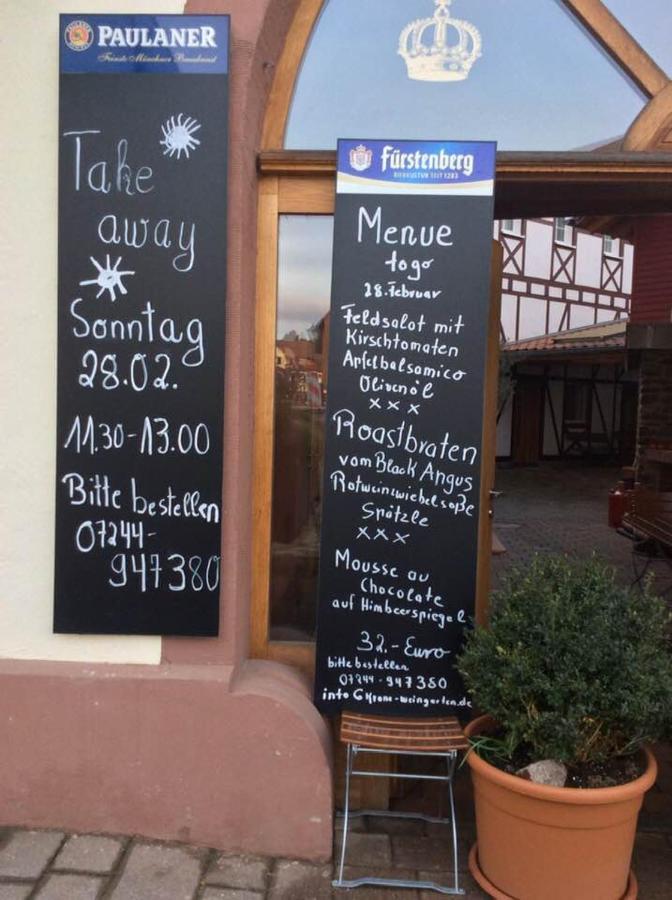 PAULANER
Feinste Münchner Braukunst
Take
away
Sonntag
28.02.
11.30-13.00
Bitte bestellen
07244-
947380
Fürstenberg
BIERKULTUR SEIT 1283
Menue
togo
28. Februar
Feldsalat mit
Kirschtomaten
Apfelbalsamico
Olivenöl
x x x
Roastbraten
vom Black Angus
Rotweinzwiebelsoße
Spätzle
x x x
Mousse au
Chocolate
auf Himbeerspiegel
32.- Euro
bitte bestellen
07244-947380
info@Krone-weingarten.de